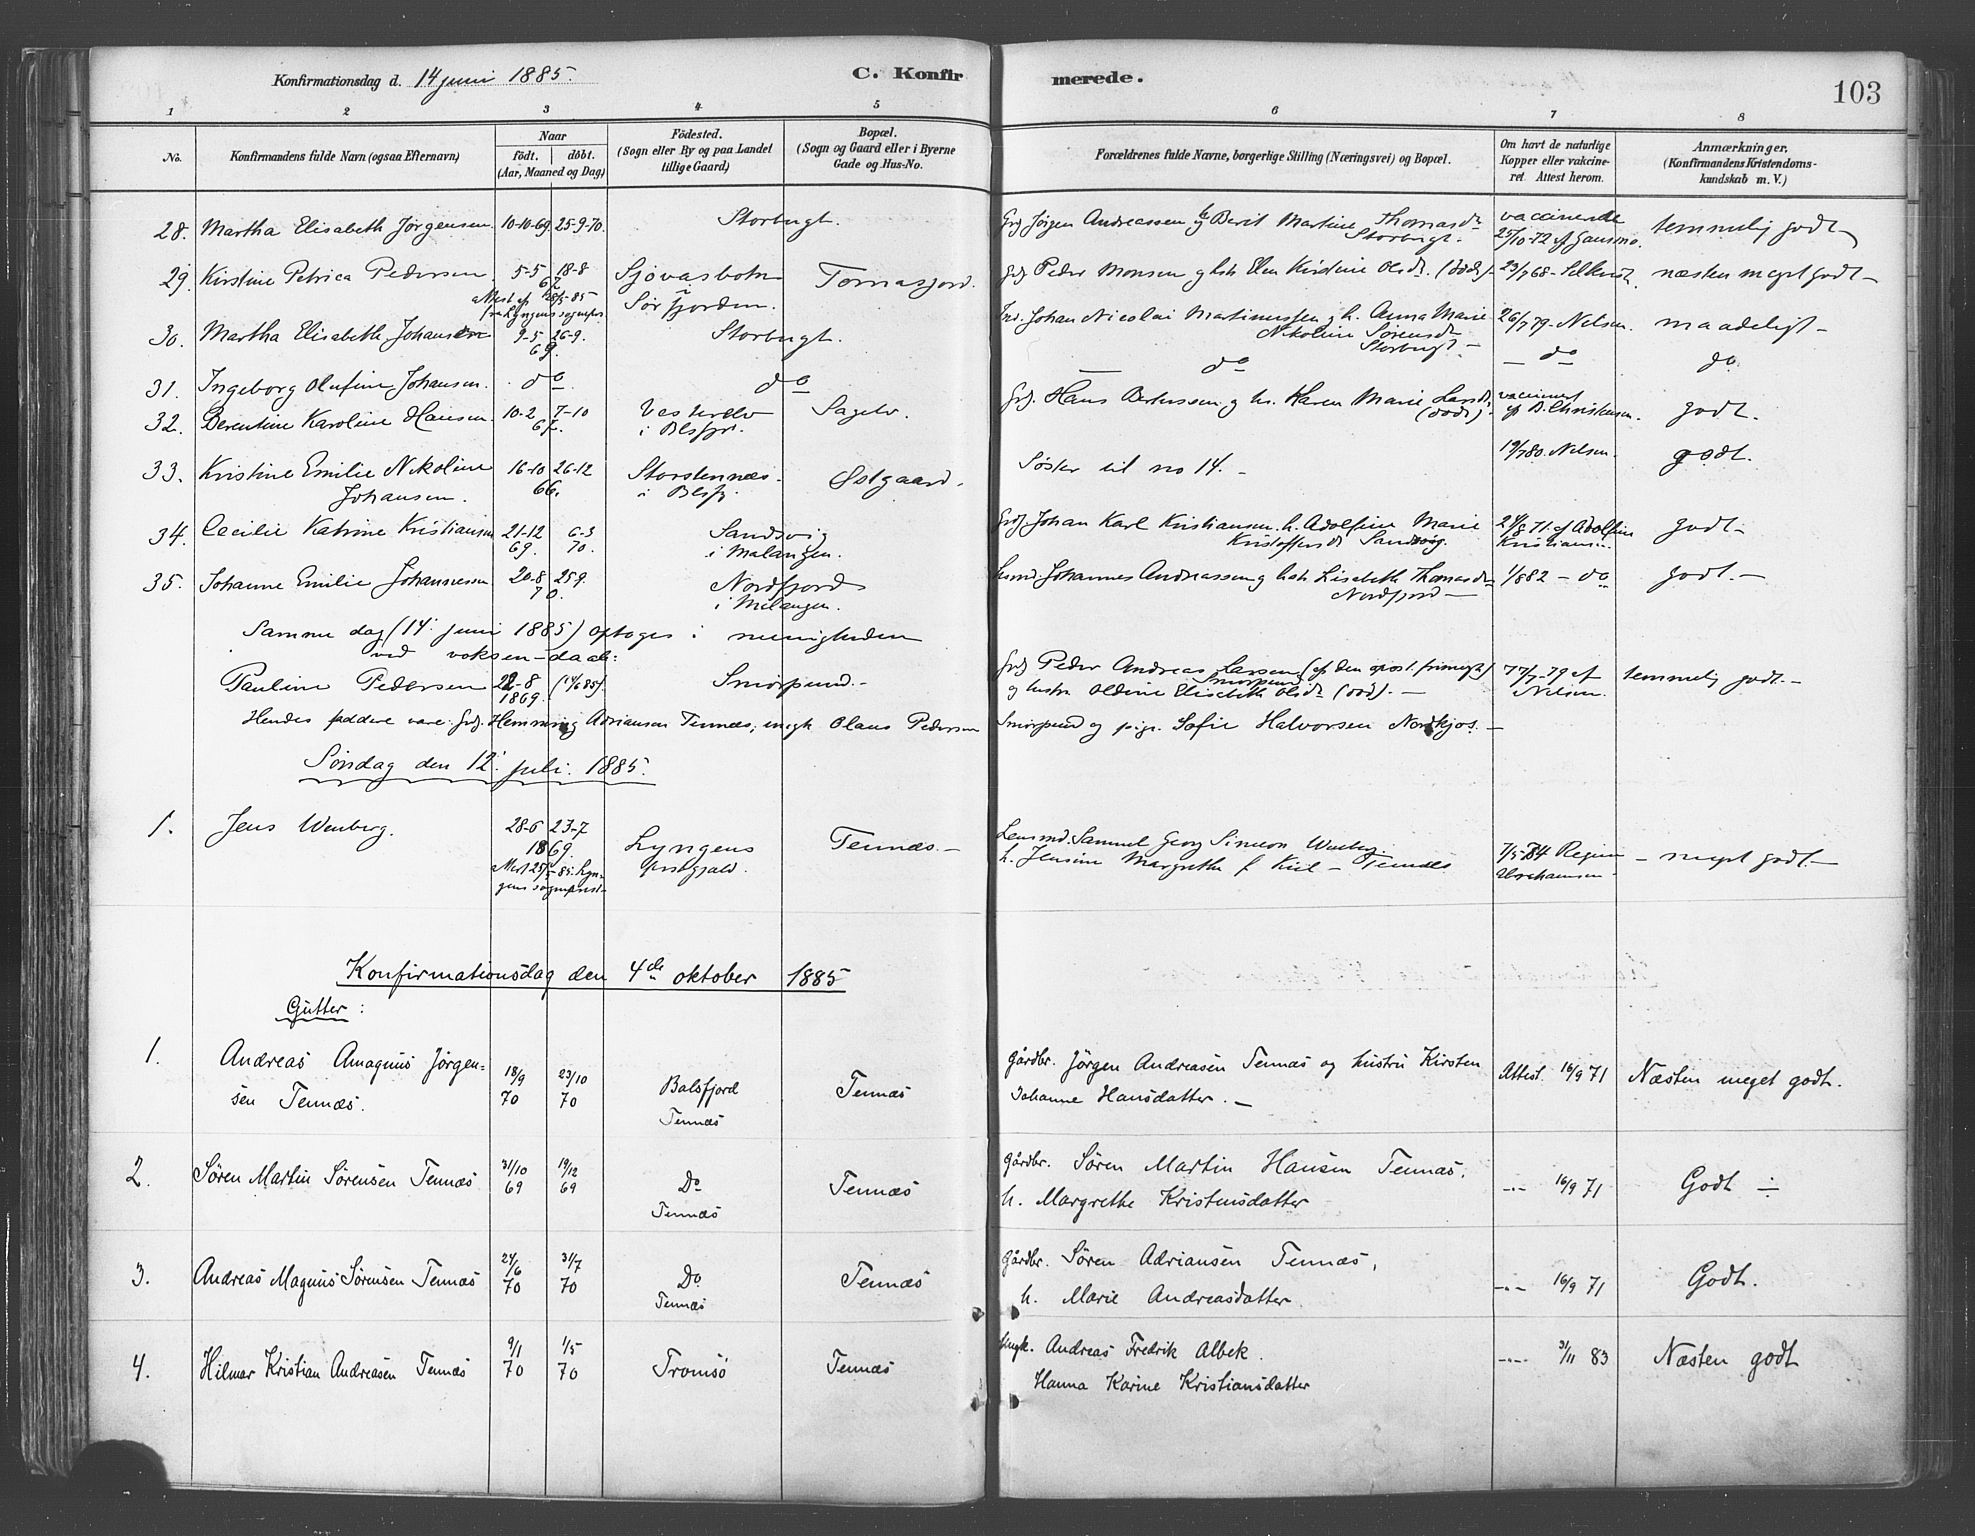 Konfirmationsdag d. 14 juni 1885. C. Konfirmerede. 103
1 2 3 4 5 6 7 8
No. Konfirmandens fulde Navn (ogsaa Efternavn) Naar födt. döbt. (Aar, Maaned og Dag) Födested. (Sogn eller By og paa Landet tillige Gaard) Bopæl. (Sogn og Gaard eller i Byerne Gade og Hus-No. Forældrenes fulde Navne, borgerlige Stilling (Næringsvei) og Bopæl. Om havt de naturlige Kopper eller vakcineret. Attest herom. Anmærkninger. (Konfirmandens Kristendomskundskab m. V.)
28. Martha Elisabeth Jørgensen 10-10-69 25-9-70. Storbugt. Grdj Jørgen Andreassen og h Berit Martine Thomasd. Storbugt. vaccinerede 25/10-72 af temmelig godt
29. Kirstine Petrica Pedersen 5-5 18-8 67 Sjøvasbotn i Sørfjorden. Tomasjord. Peder Monsen og hst. Elen Kirstine Olsd. (død) 23/7 68- næsten meget godt -
Attest af 28/5-85 fra Lyngens sognepr.
30. Martha Elisabeth Johansen 9-5 26-9. 69. Storbugt. Johan Nicolai Martinussen og h. Anna Marie Nikoline Sørensd. Storbugt - 26/7 79- Nelsen. maadeligt -
31. Ingeborg Olufine Johansen. do do do - do do
32. Berentine Karoline Hansen. 10-2 7-10 67. Vesterelv i Blsfjr. Sagelv. Grdj. Hans Bertussen og hr. Karen Marie Larsd. (død). vaccineret af B. Christensen. godt.
33. Kristine Emilie Nikoline Johansen. 16-10 26-12 66. Storstennæs i Blsfj. Østgaard. Søster til no 14. - 19/7 80. Nelsen. godt.
34. Cecilie Katrine Kristiansen 21-12 69. 6-3 70. Sandsvig i Malangen. Grdj Johan Karl Kristiansen. h. Adolfine Marie Kristoffersd. Sandsvig. 24/8 71. af Adolfine Kristiansen. godt -
35. Johanne Emilie Johannesen 20-8 25-9. 70. Nordfjord i Malangen. Johannes Andreassen og hst. Lisabeth Thomasd. Nordfjord - 1/8 82 - do godt. -
Samme dag (14. juni 1885) optoges i menigheden
ved voksen-daab:
Pauline Pedersen 22-8 1869. (14/6 85). Smørpund. - Grdj Peder Andreas Larsen (af den apost. frimegh) Smørpund og hustr. Oldine Elisabeth Olsd. (død). - 7-79 af Nelsen. temmelig godt. -
Hendes faddere vare: Grdj. Hemming Adriansen Tennæs, ungk Olaus Pedersen Smørpund og pige. Sofie Halvorsen Nordkjos. -
Søndag den 12. juli. 1885.
1. Jens Wenberg. 28-6 23-7 1869 Lyngens prstgjæld. Tennæs. - Lensmd. Samuel Georg Simeon Wenberg. h. Jensine Margrethe f. Kiil - Tennæs 7/5-84 Regine Abrahamsen - meget godt. -
Attest 25/5-85. Lyngens sogneprest.
Konfirmationsdag den 4de oktober 1885
Gutter:
1. Andreas Amagnus Jørgensen Tennæs. 18/9 70 23/10 70 Balsfjord Tennæs Tennæs Gårdbr. Jörgen Andreasen Tennæs og hustru Kirsten Johanne Hansdatter. - Attest. 16/9 71 Næsten meget godt.
2. Søren Martin Sørensen Tennæs 31/10 69 19/12 69 Do Tennæs Tennæs Gårdbr. Sören Martin Hansen Tennæs. h. Margrethe Kristensdatter -"- 16/9 71 Godt ÷
3. Andreas Magnus Sørensen Tennæs 24/6 70 31/7 70 Do Tennæs Tennæs Gårdbr. Sören Adriansen Tennæs, h. Marie Andreasdatter. -"- 16/9 71 Godt.
4. Hilmar Kristian Andreasen Tennæs 9/1 70 1/5 70 Tromsö Tennæs Ungk. Andreas Fredrik Albek. Hanna Karine Kristiansdatter -"- 3/11 83 Næsten godt